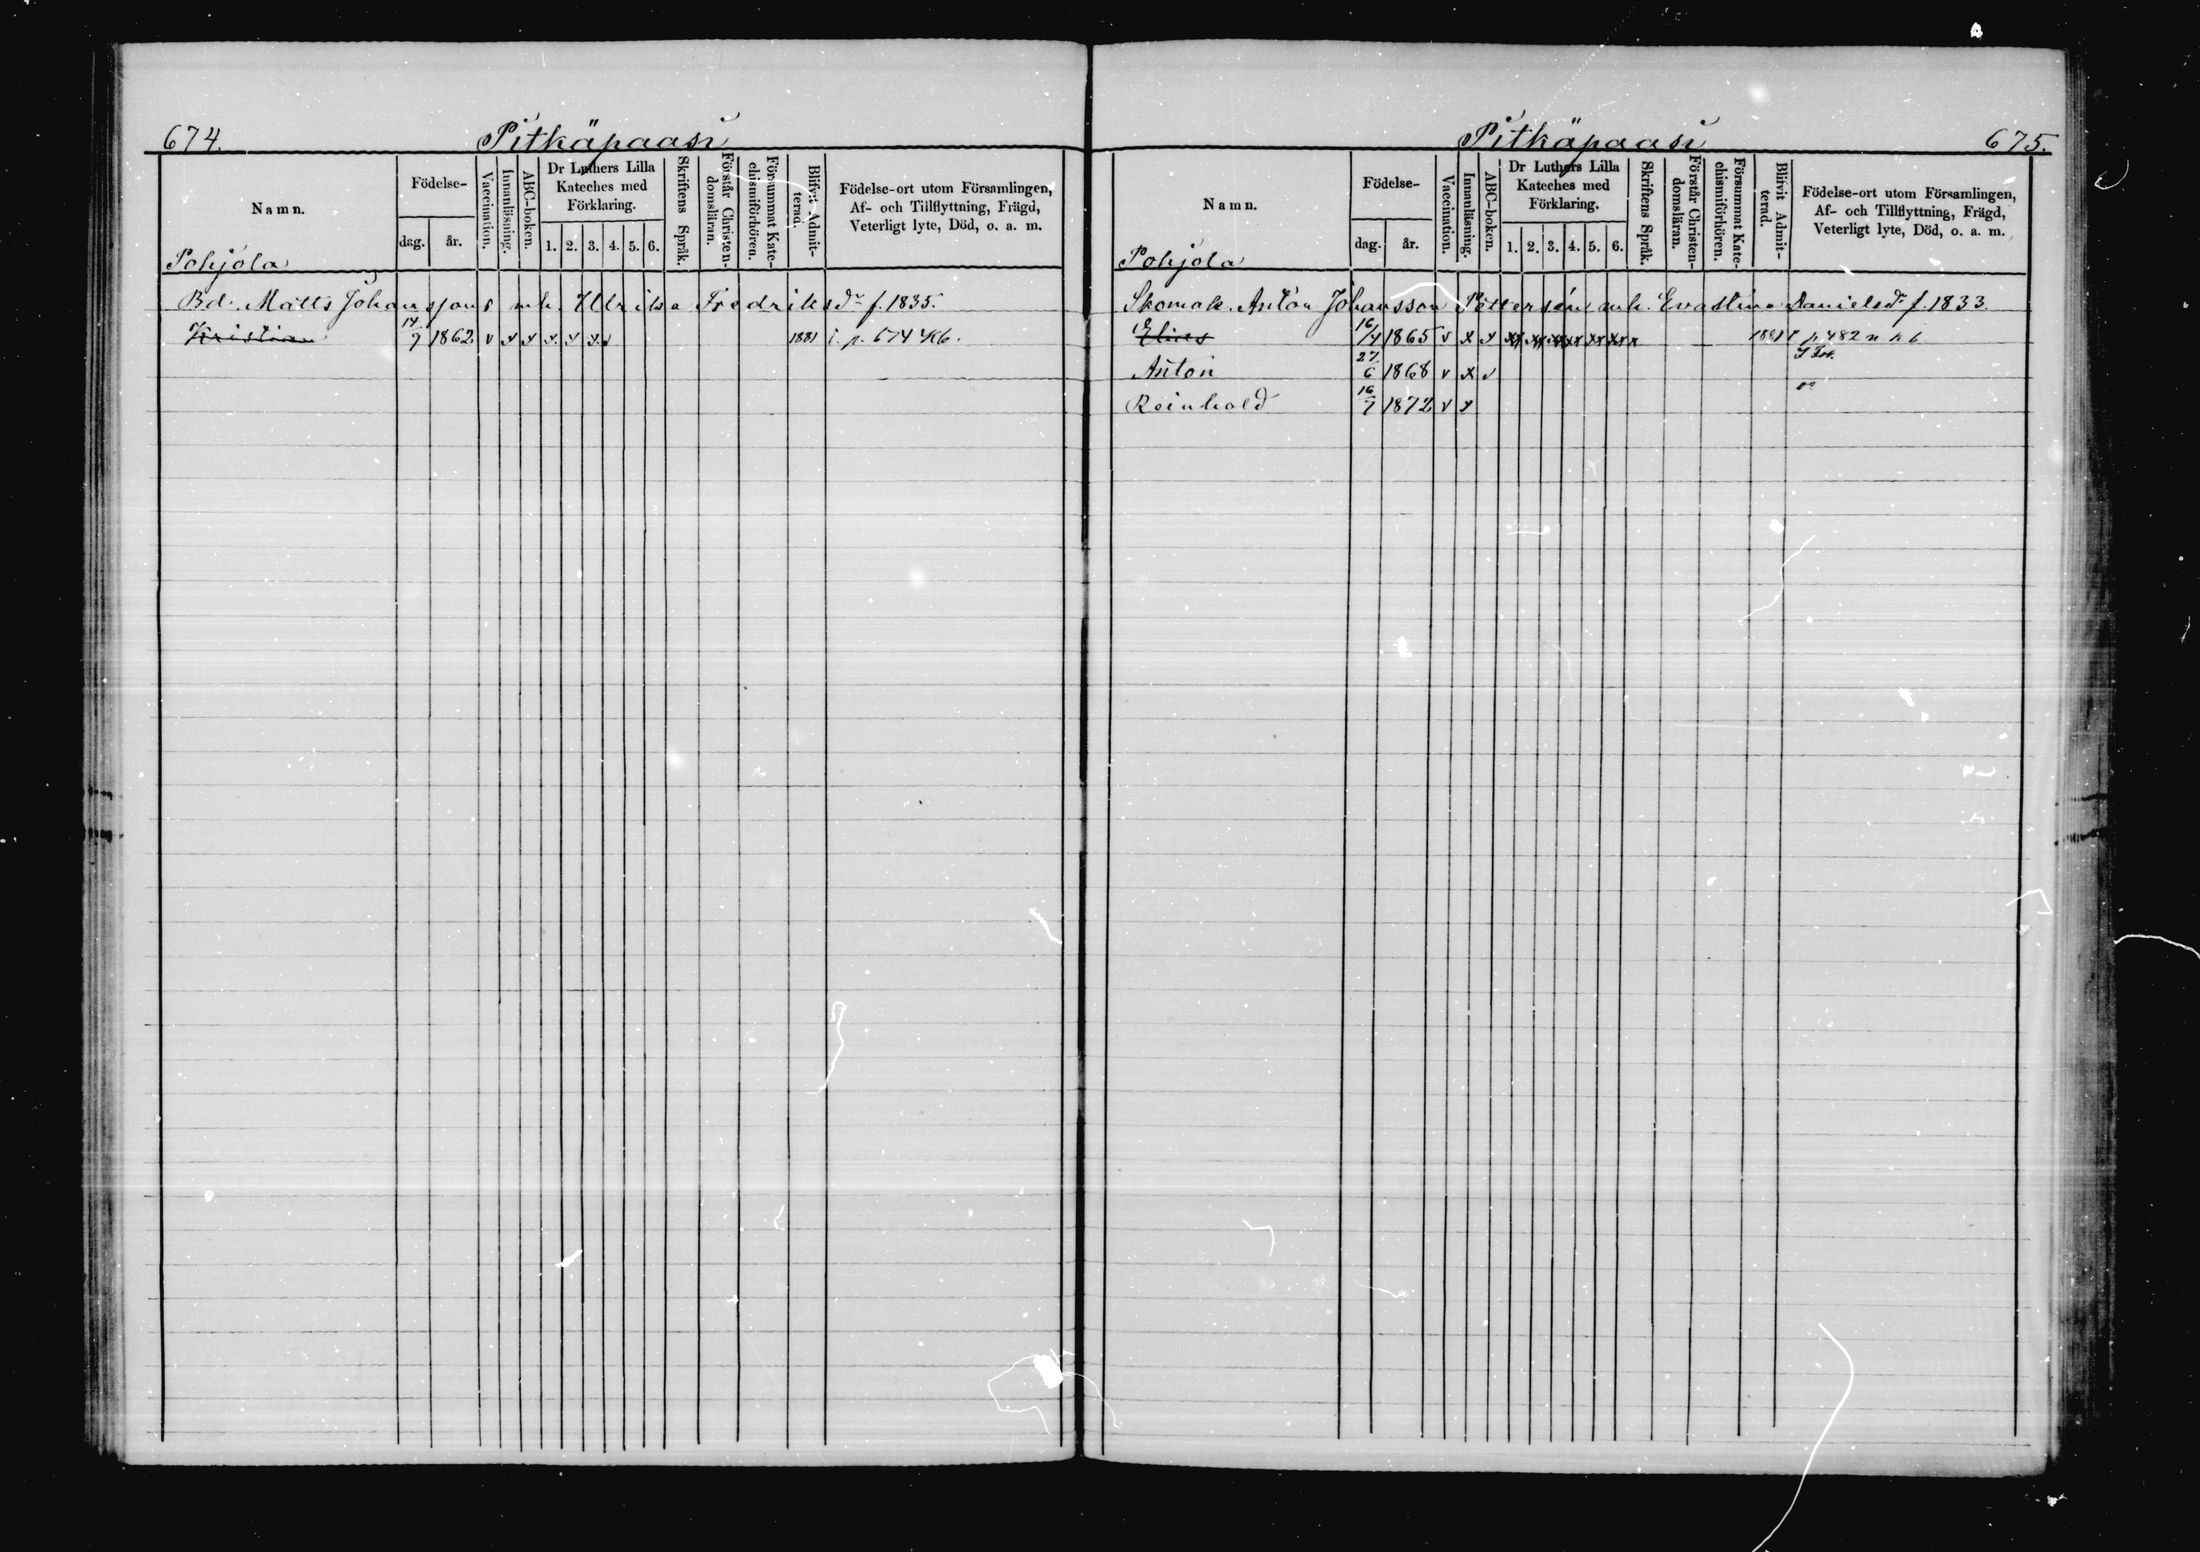 674.
Pitkäpaasi
Namn.
Födelse-
dag.
år.
Vaccination.
Innanläsning.
ABC-boken.
Dr Luthers Lilla Kateches med Förklaring.
1. 2. 3. 4. 5. 6.
Skriftens Språk.
Förstår Christendomsläran.
Försummat Katechismiförhören.
Blifvit Admitterad.
Födelse-ort utom Församlingen,
Af- och Tillflyttning, Frägd,
Veterligt lyte, Död, o. a. m.
Pohjola
Bd. Matts Johansson s mh. Ulrika Fredriksdr f. 1835.
Kristina 14/7 1862 v x x x x x 1881 i. p. 674 Kb.
Pitkäpaasi
675.
Namn.
Födelse-
dag.
år.
Vaccination.
Innanläsning.
ABC-boken.
Dr Luthers Lilla Kateches med Förklaring.
1. 2. 3. 4. 5. 6.
Skriftens Språk.
Förstår Christen-domsläran.
Försummat Kate-chismiförhören.
Blifvit Admit-terad.
Födelse-ort utom Församlingen,
Af- och Tillflyttning, Frägd,
Veterligt lyte, Död, o. a. m.
Pohjola
Skomak. Anton Johansson Pettersén mh. Evastina Danielsdr f. 1833.
Elias 16/4 1865 v x x 1881 p. 482 n k b
Anton 27/6 1868 v x v
Reinhold 16/7 1872 v x